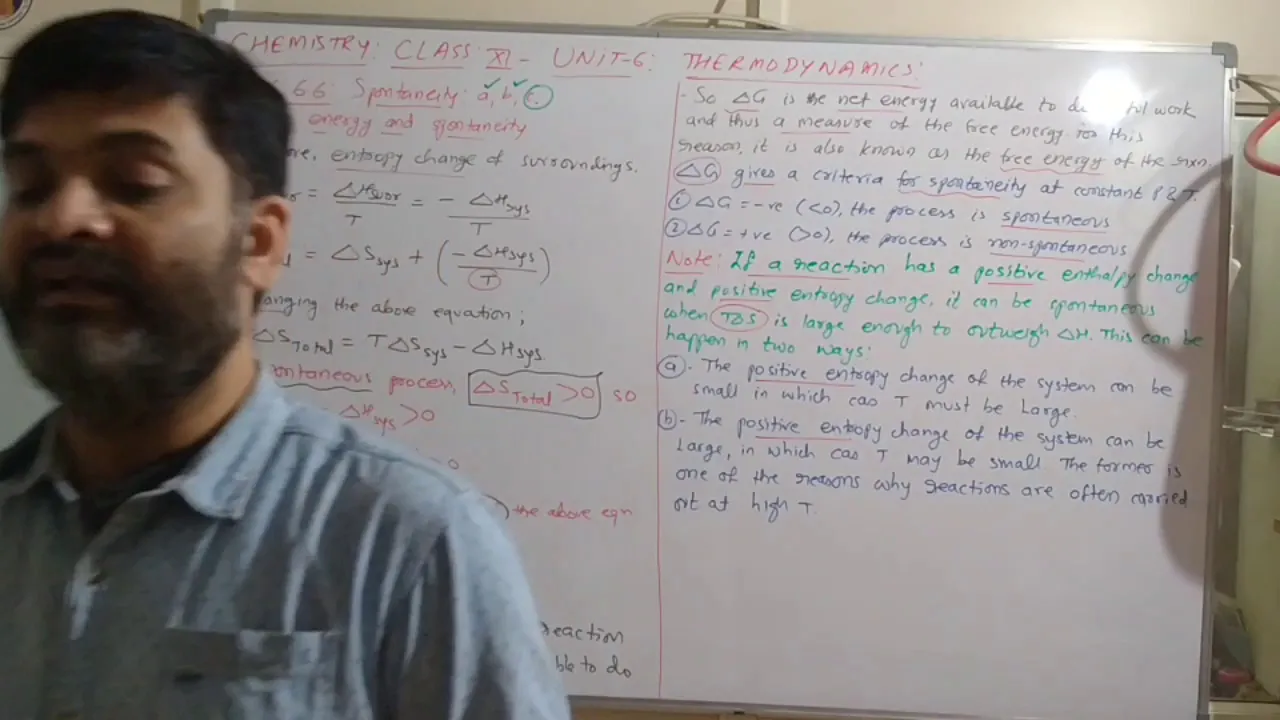 CHEMISTRY: CLASS XI - UNIT-6: THERMODYNAMICS:
6.6: Spontaneity: a, b, c.
energy and spontaneity
entropy change of surroundings.
= ΔHsur / T = - ΔHsys / T
= ΔSsys + (-ΔHsys / T)
anging the above equation;
ΔSTotal = TΔSsys - ΔHsys.
ontaneous process, ΔSTotal >0 so
ΔHsys >0
the above eqn
reaction
ble to do
- So ΔG is the net energy available to do work
and thus a measure of the free energy for this
reason, it is also known as the free energy of the rxn.
ΔG gives a criteria for spontaneity at constant P & T.
① ΔG = -ve (<0), the process is spontaneous
② ΔG = +ve (>0), the process is non-spontaneous
Note: If a reaction has a positive enthalpy change
and positive entropy change, it can be spontaneous
when TΔS is large enough to outweigh ΔH. This can be
happen in two ways:
(a)- The positive entropy change of the system can be
small in which cas T must be Large.
(b)- The positive entropy change of the system can be
Large, in which cas T may be small. The former is
one of the reasons why reactions are often carried
out at high T.